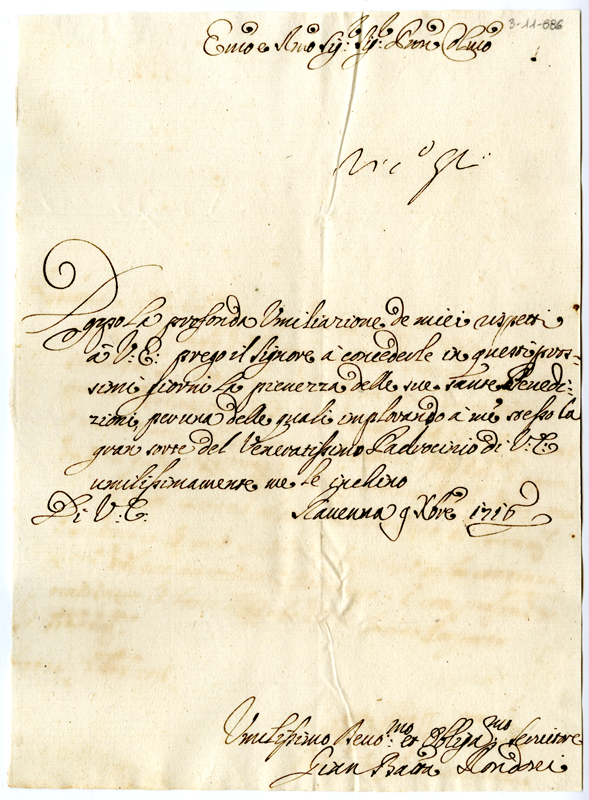 3-11-686
Em̃o e Rm̃o Sig:r Sig:r Pron Col̃mo
Doppo la profonda Umiliazione de miei rispetti
à V: E: prego il Signore à concederle in questi pross-
simi giorni la pienezza delle sue sante Benedi-
zioni, per una delle quali implorando à me stesso la
gran sorte del Veneratissimo Padrocinio di V: E:
umilissimamente me le inchino
Di V: E: Ravenna 9 Xbre 1716
Umilissimo Devo:mo et Obliga:mo Servitore
Gian Batta Rondinei